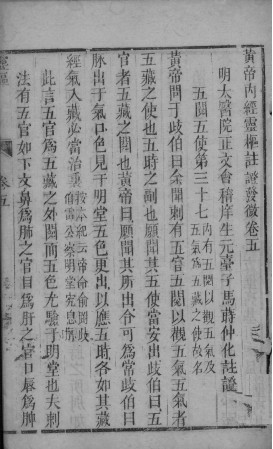 黃帝內經靈樞註證發微卷五
明太醫院正文會稽庠生元臺子馬蒔仲化註證
五閱五使第三十七 內有五閱以觀五氣及五氣爲五藏之使故名
黃帝問于歧伯曰余聞刺有五官五閱以觀五氣五氣者
五藏之使也五時之副也願聞其五使當安出歧伯曰五
官者五藏之閱也黃帝曰願聞其所出令可爲常歧伯曰
脉出于氣口色見于明堂五色更出以應五時各如其藏
經氣入藏必當治裏 按本紀云帝命俞跗歧伯雷公察明堂究息脉
此言五官爲五藏之外閱而五色尤驗于明堂也夫刺
法有五官如下文鼻爲肺之官目爲肝之官口唇爲脾
靈樞
卷五